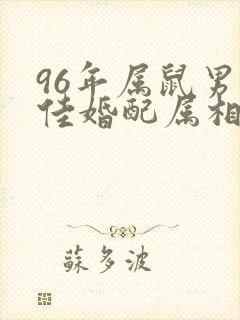 96年属鼠男
佳婚配属相
蘇多波